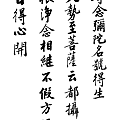 念彌陀名號得生
大勢至菩薩云都攝
根淨念相繼不假方
自得心開